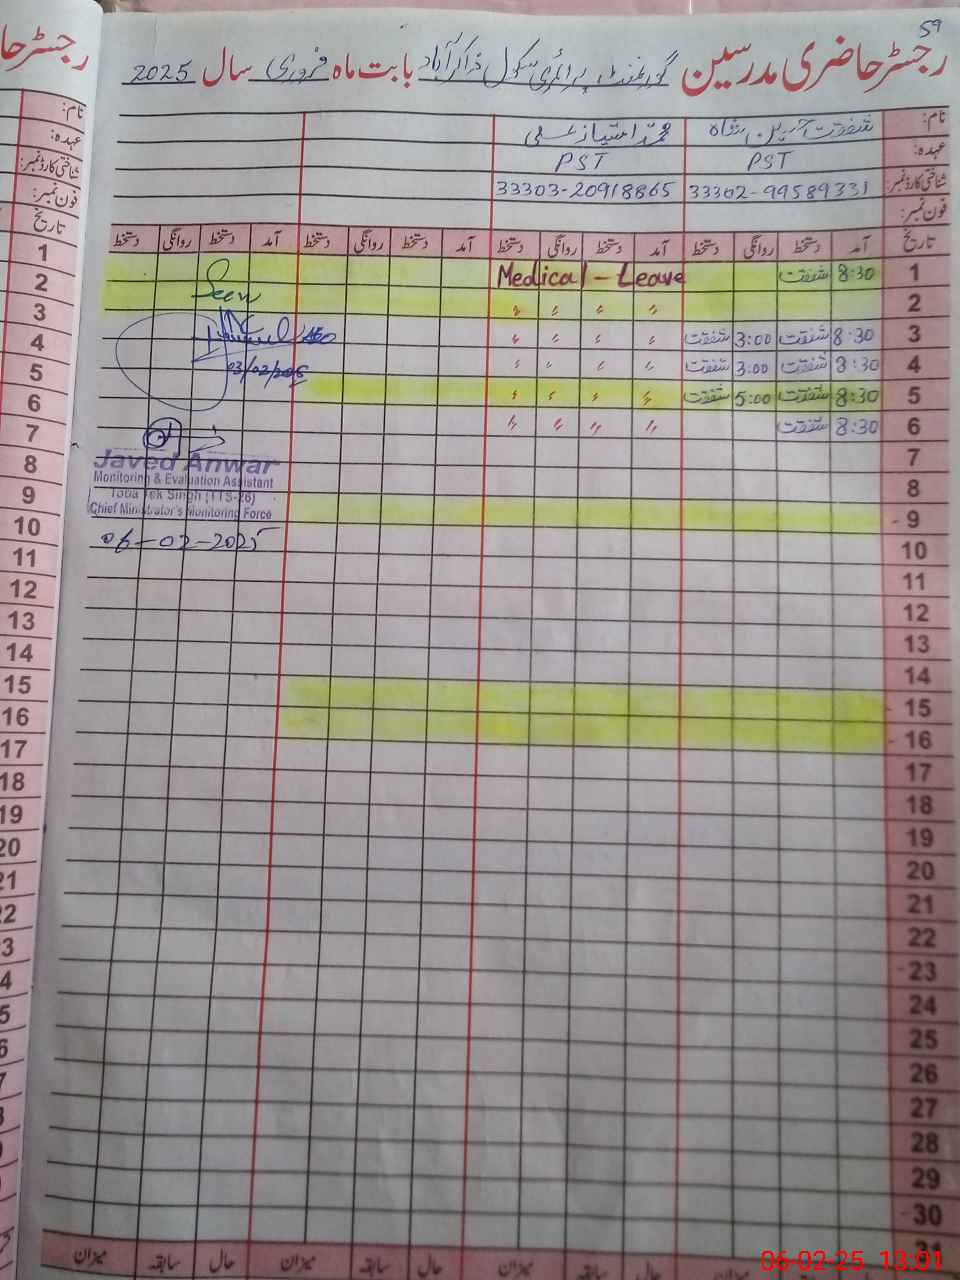 59
رجسٹر حاضری مدرسین گورنمنٹ پرائمری سکول ذاکر آباد بابت ماہ فروری سال 2025
نام: شفقت حسین شاہ محمد امتیاز علی
عہدہ: PST PST
شناختی کارڈ نمبر: 33302-99589331 33303-20918865
فون نمبر:
تاریخ آمد دستخط روانگی دستخط آمد دستخط روانگی دستخط آمد دستخط روانگی دستخط آمد دستخط روانگی دستخط
1 8:30 شفقت Medical - Leave
2 〃 〃 〃 〃
3 8:30 شفقت 3:00 شفقت 〃 〃 〃 〃
4 8:30 شفقت 3:00 شفقت 〃 〃 〃 〃
5 8:30 شفقت 5:00 شفقت 〃 〃 〃 〃
6 8:30 شفقت 〃 〃 〃 〃
7
8
9
10
11
12
13
14
15
16
17
18
19
20
21
22
23
24
25
26
27
28
29
30
31
Seen
AEO
03/02/2025
Javed Anwar
Monitoring & Evaluation Assistant
Toba Tek Singh (TTS-26)
Chief Minister's Monitoring Force
06-02-2025
حال سابقہ میزان حال سابقہ میزان حال سابقہ میزان
رجسٹر حا
نام:
عہدہ:
شناختی کارڈ نمبر:
فون نمبر:
تاریخ
1
2
3
4
5
6
7
8
9
10
11
12
13
14
15
16
17
18
19
20
21
22
06-02-25 13:01